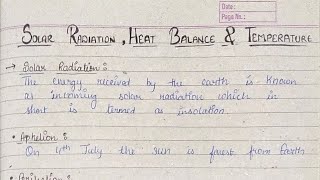 Date:
Page No.:
SOLAR RADIATION, HEAT BALANCE & TEMPERATURE
→ Solar Radiation :
The energy received by the earth is known
as incoming solar radiation which in
short is termed as insolation.
• Aphelion :
On 4th July the sun is farest from Earth
• Perihelion :